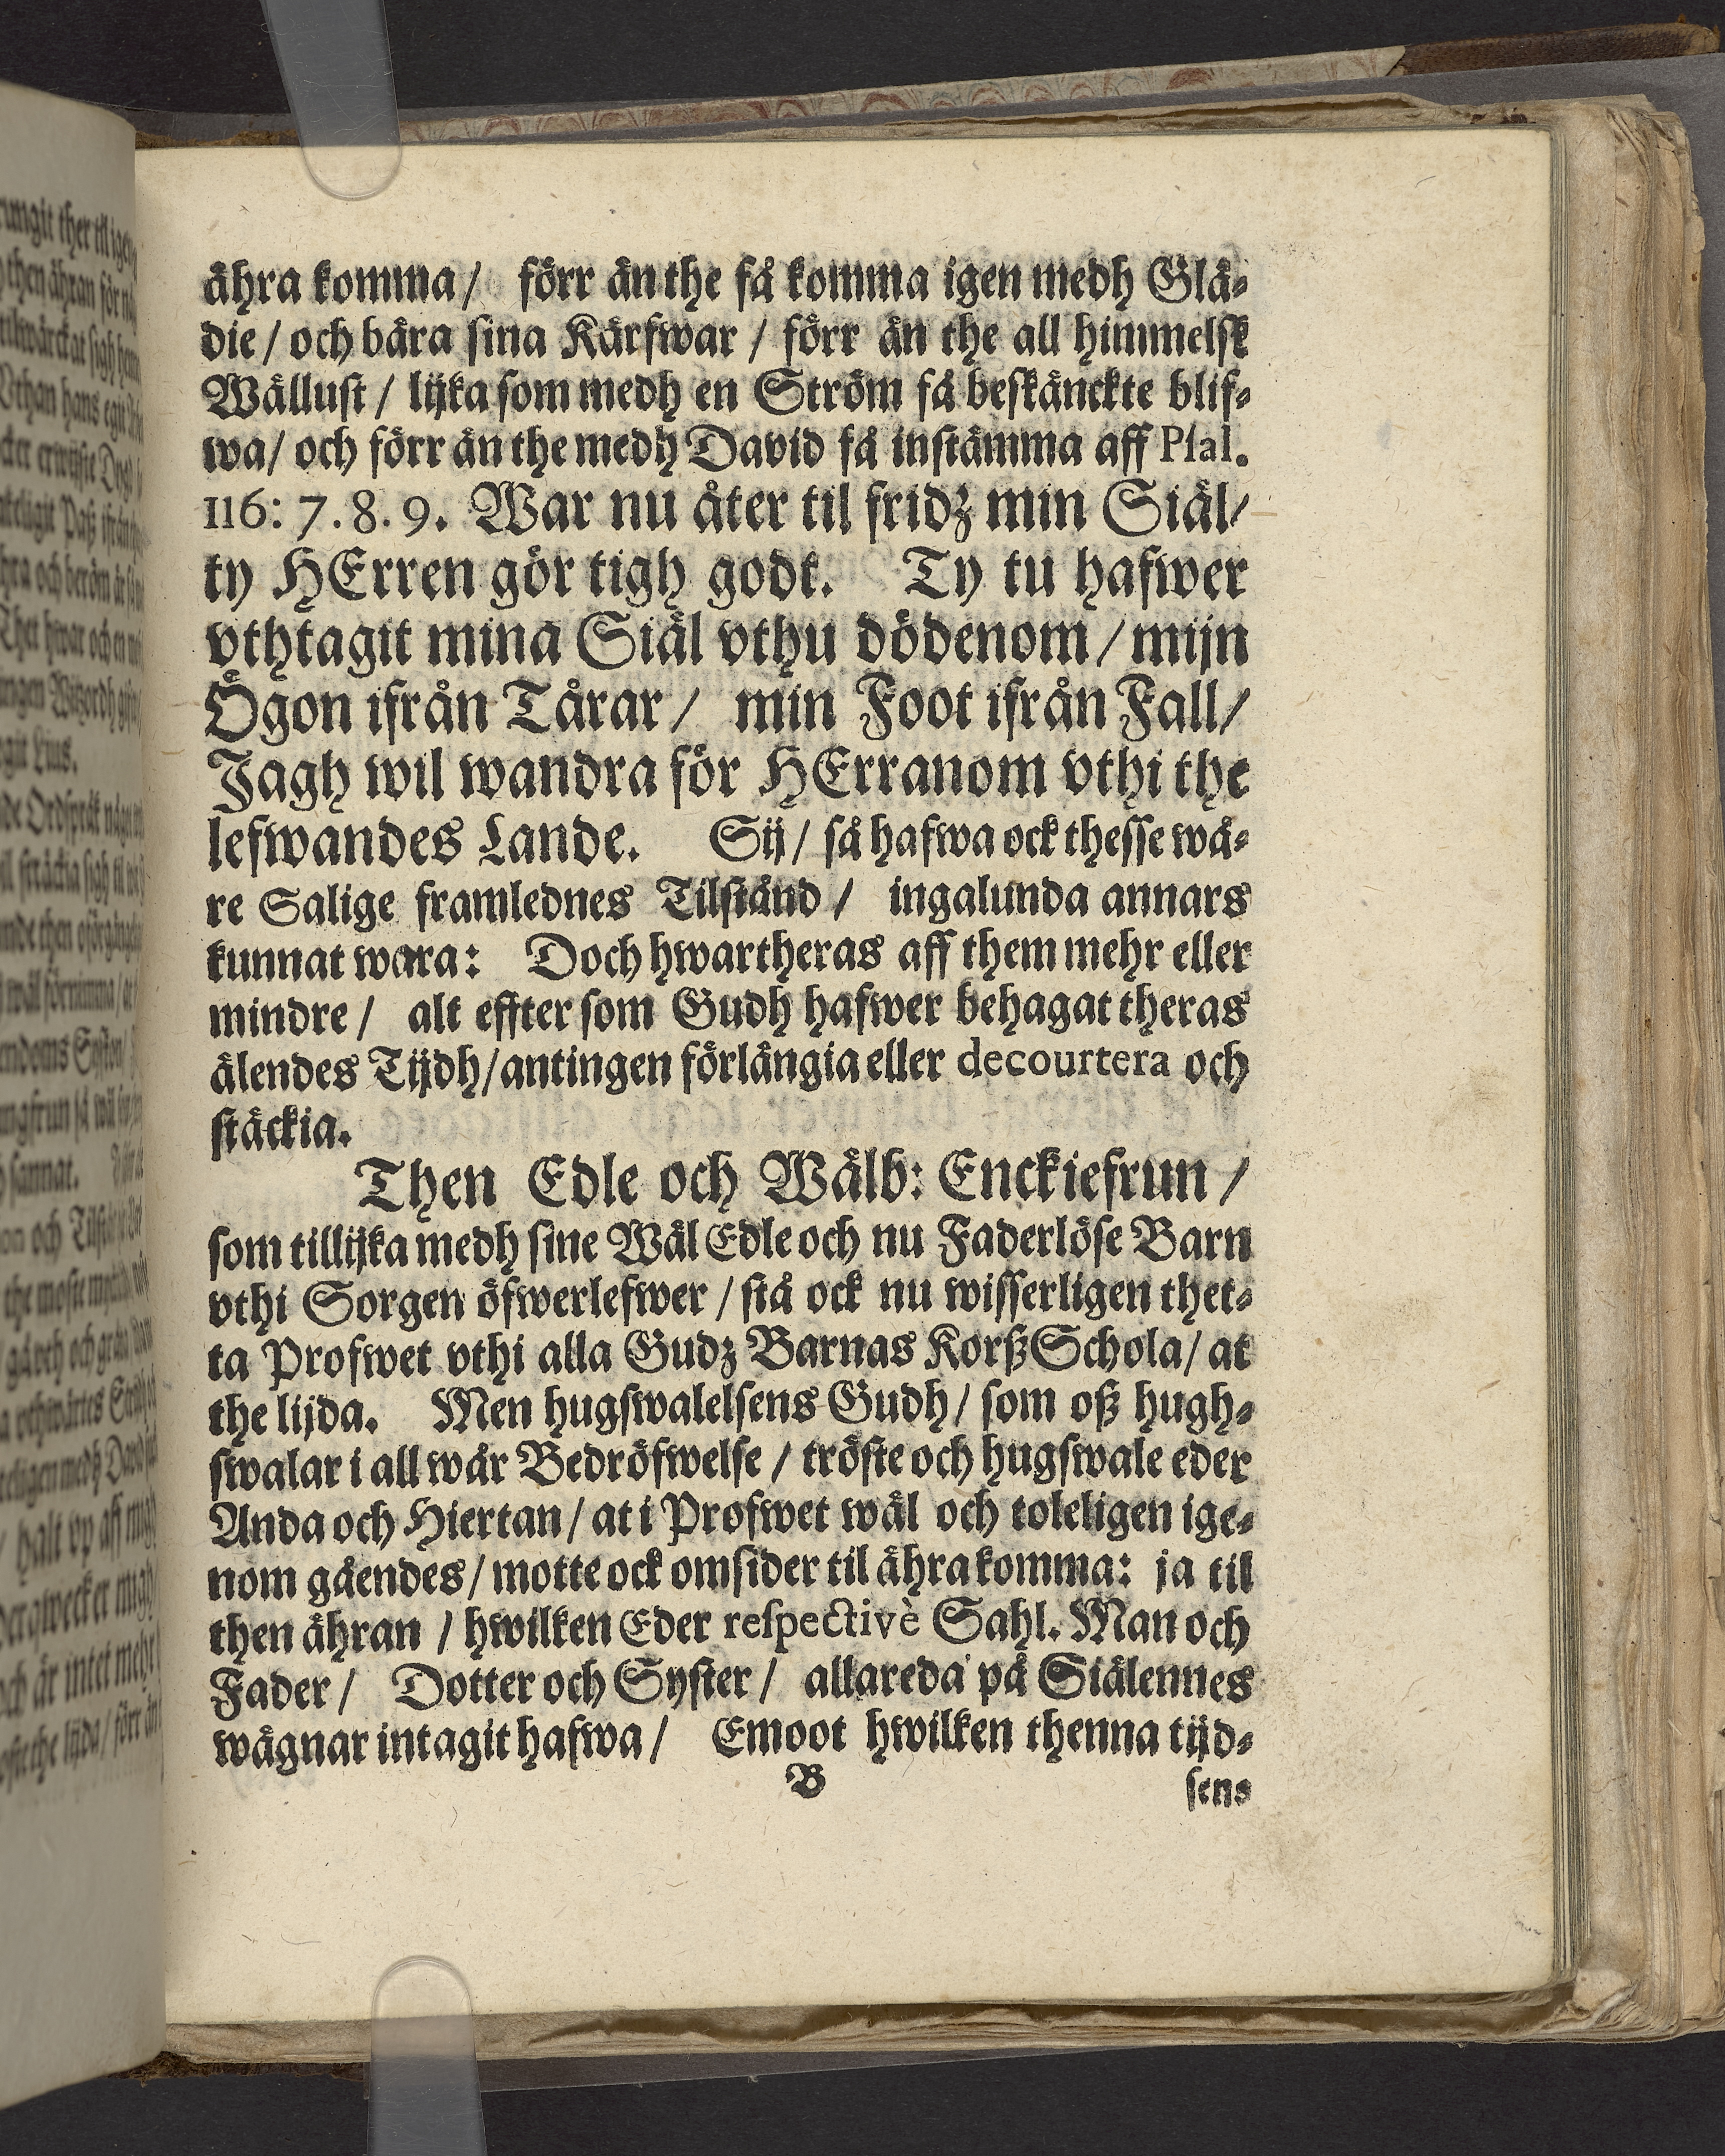 ähra komma / förr än the få komma igen medh Glä-
die / och bära sina Kärfwar / förr än the all himmelsk
Wällust / lijka som medh en Ström få beskänckte blif-
wa / och förr än the medh David få instämma aff Psal.
116: 7. 8. 9. War nu åter til fridz min Siäl /
ty HErren gör tigh godt. Ty tu hafwer
vthtagit mina Siäl vthu dödenom / mijn
Ögon ifrån Tårar / min Foot ifrån Fall /
Jagh wil wandra för HErranom vthi the
lefwandes Lande. Sij / så hafwa ock thesse wå-
re Salige framlednes Tilstånd / ingalunda annars
kunnat wara: Doch hwartheras aff them mehr eller
mindre / alt effter som Gudh hafwer behagat theras
älendes Tijdh / antingen förlängia eller decourtera och
stäckia.
Then Edle och Wälb: Enckiefrun /
som tillijka medh sine Wäl Edle och nu Faderlöse Barn
vthi Sorgen öfwerlefwer / stå ock nu wisserligen thet-
ta Profwet vthi alla Gudz Barnas Korß Schola / at
the lijda. Men hugswalelsens Gudh / som oß hugh-
swalar i all wår Bedröfwelse / tröste och hugswale eder
Anda och Hiertan / at i Profwet wäl och toleligen ige-
nom gåendes / motte ock omsider til ähra komma: ja til
then ähran / hwilken Eder respectivè Sahl. Man och
Fader / Dotter och Syster / allareda på Siälennes
wägnar intagit hafwa / Emoot hwilken thenna tijd-
B
sens